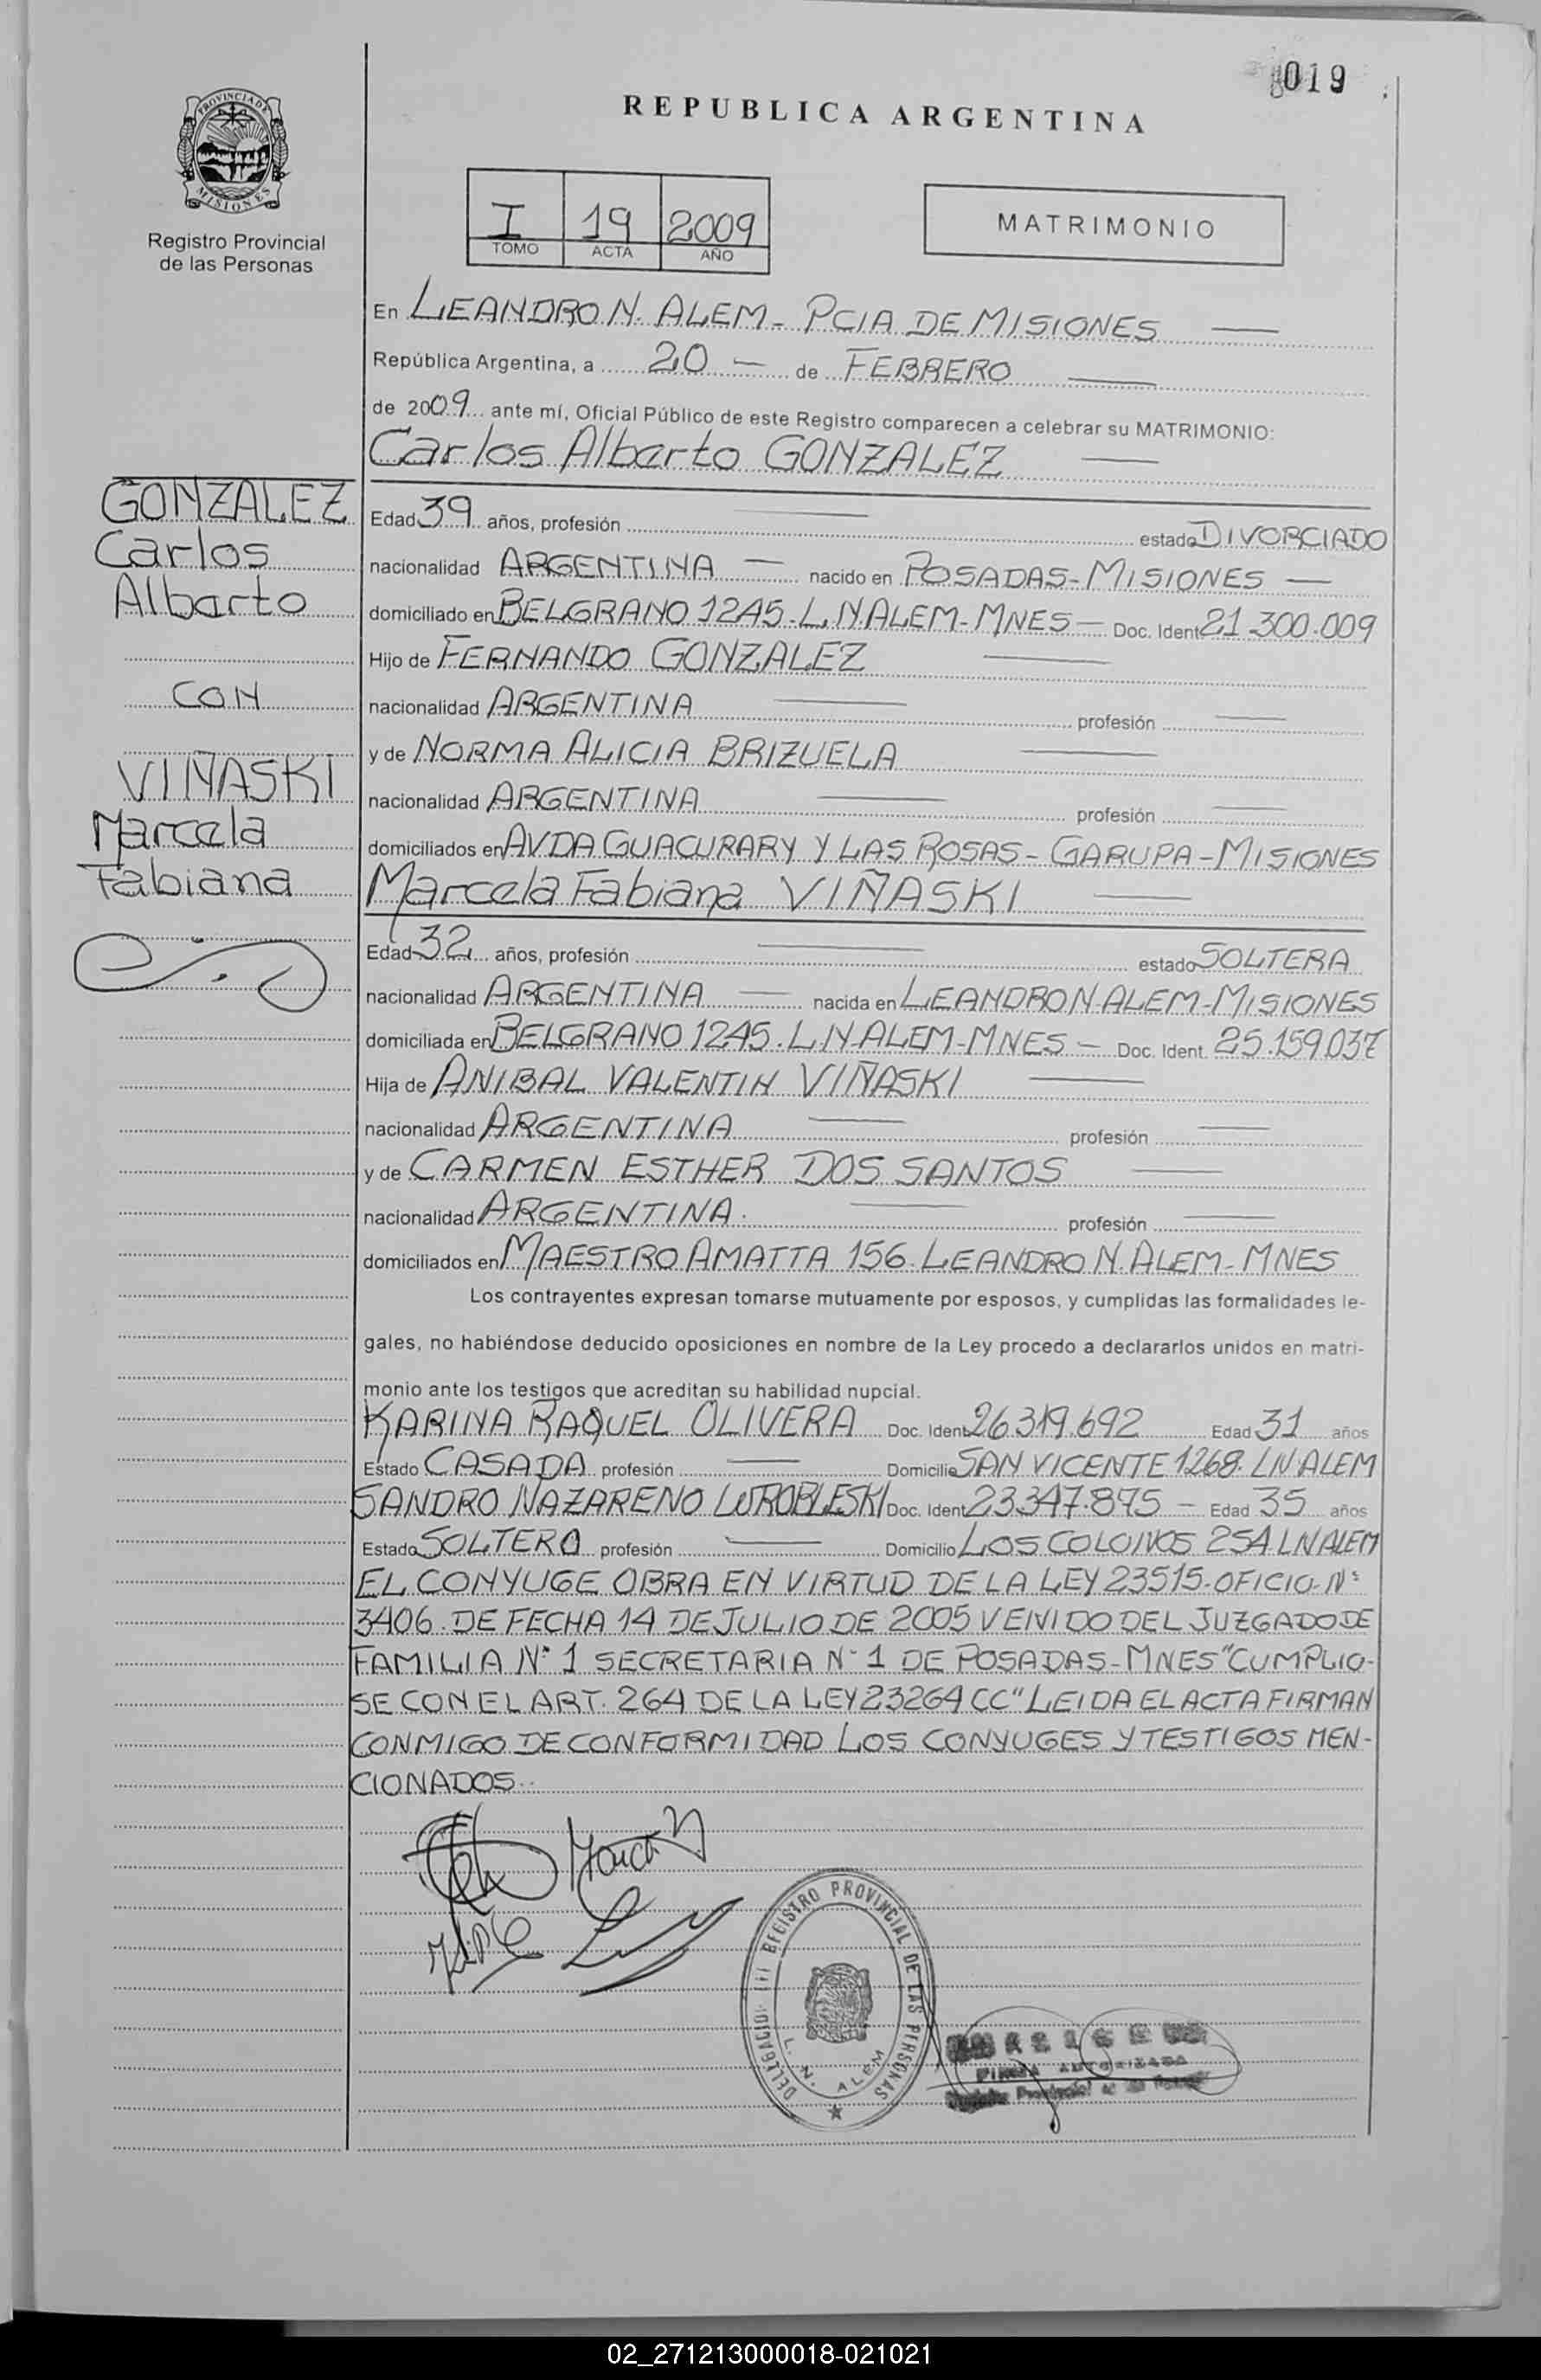 019
REPUBLICA ARGENTINA
PROVINCIA DE MISIONES
Registro Provincial
de las Personas
I 19 2009
TOMO ACTA AÑO
MATRIMONIO
En LEANDRO N. ALEM - PCIA DE MISIONES
República Argentina, a 20 - de FEBRERO
de 2009 ante mí, Oficial Público de este Registro comparecen a celebrar su MATRIMONIO:
Carlos Alberto GONZALEZ
GONZALEZ
Carlos
Alberto
CON
VIÑASKI
Marcela
Fabiana
Edad 39 años, profesión estado DIVORCIADO
nacionalidad ARGENTINA nacido en POSADAS-MISIONES
domiciliado en BELGRANO 1245. L.N.ALEM-MNES Doc. Ident 21.300.009
Hijo de FERNANDO GONZALEZ
nacionalidad ARGENTINA profesión
y de NORMA ALICIA BRIZUELA
nacionalidad ARGENTINA profesión
domiciliados en AVDA GUACURARY Y LAS ROSAS - GARUPA - MISIONES
Marcela Fabiana VIÑASKI
Edad 32 años, profesión estado SOLTERA
nacionalidad ARGENTINA nacida en LEANDRO N. ALEM-MISIONES
domiciliada en BELGRANO 1245. L.N.ALEM-MNES - Doc. Ident. 25.159.037
Hija de ANIBAL VALENTIN VIÑASKI
nacionalidad ARGENTINA profesión
y de CARMEN ESTHER DOS SANTOS
nacionalidad ARGENTINA. profesión
domiciliados en MAESTRO AMATTA 156. LEANDRO N. ALEM-MNES
Los contrayentes expresan tomarse mutuamente por esposos, y cumplidas las formalidades le-
gales, no habiéndose deducido oposiciones en nombre de la Ley procedo a declararlos unidos en matri-
monio ante los testigos que acreditan su habilidad nupcial.
KARINA RAQUEL OLIVERA Doc. Ident 26.319.692 Edad 31 años
Estado CASADA profesión Domicilio SAN VICENTE 1268. LN.ALEM
SANDRO NAZARENO WROBLESKI Doc. Ident 23.347.875 - Edad 35 años
Estado SOLTERO profesión Domicilio LOS COLONOS 254. LN ALEM
EL CONYUGE OBRA EN VIRTUD DE LA LEY 23515-OFICIO-Nº
3406. DE FECHA 14 DE JULIO DE 2005 VENIDO DEL JUZGADO DE
FAMILIA Nº 1 SECRETARIA Nº 1 DE POSADAS-MNES "CUMPLIO-
SE CON EL ART. 264 DE LA LEY 23264 CC" LEIDA EL ACTA FIRMAN
CONMIGO DE CONFORMIDAD LOS CONYUGES Y TESTIGOS MEN-
CIONADOS.
REGISTRO PROVINCIAL DE LAS PERSONAS
DELEGACION
L. N. ALEM
FIRMA AUTORIZADA
02_271213000018-021021